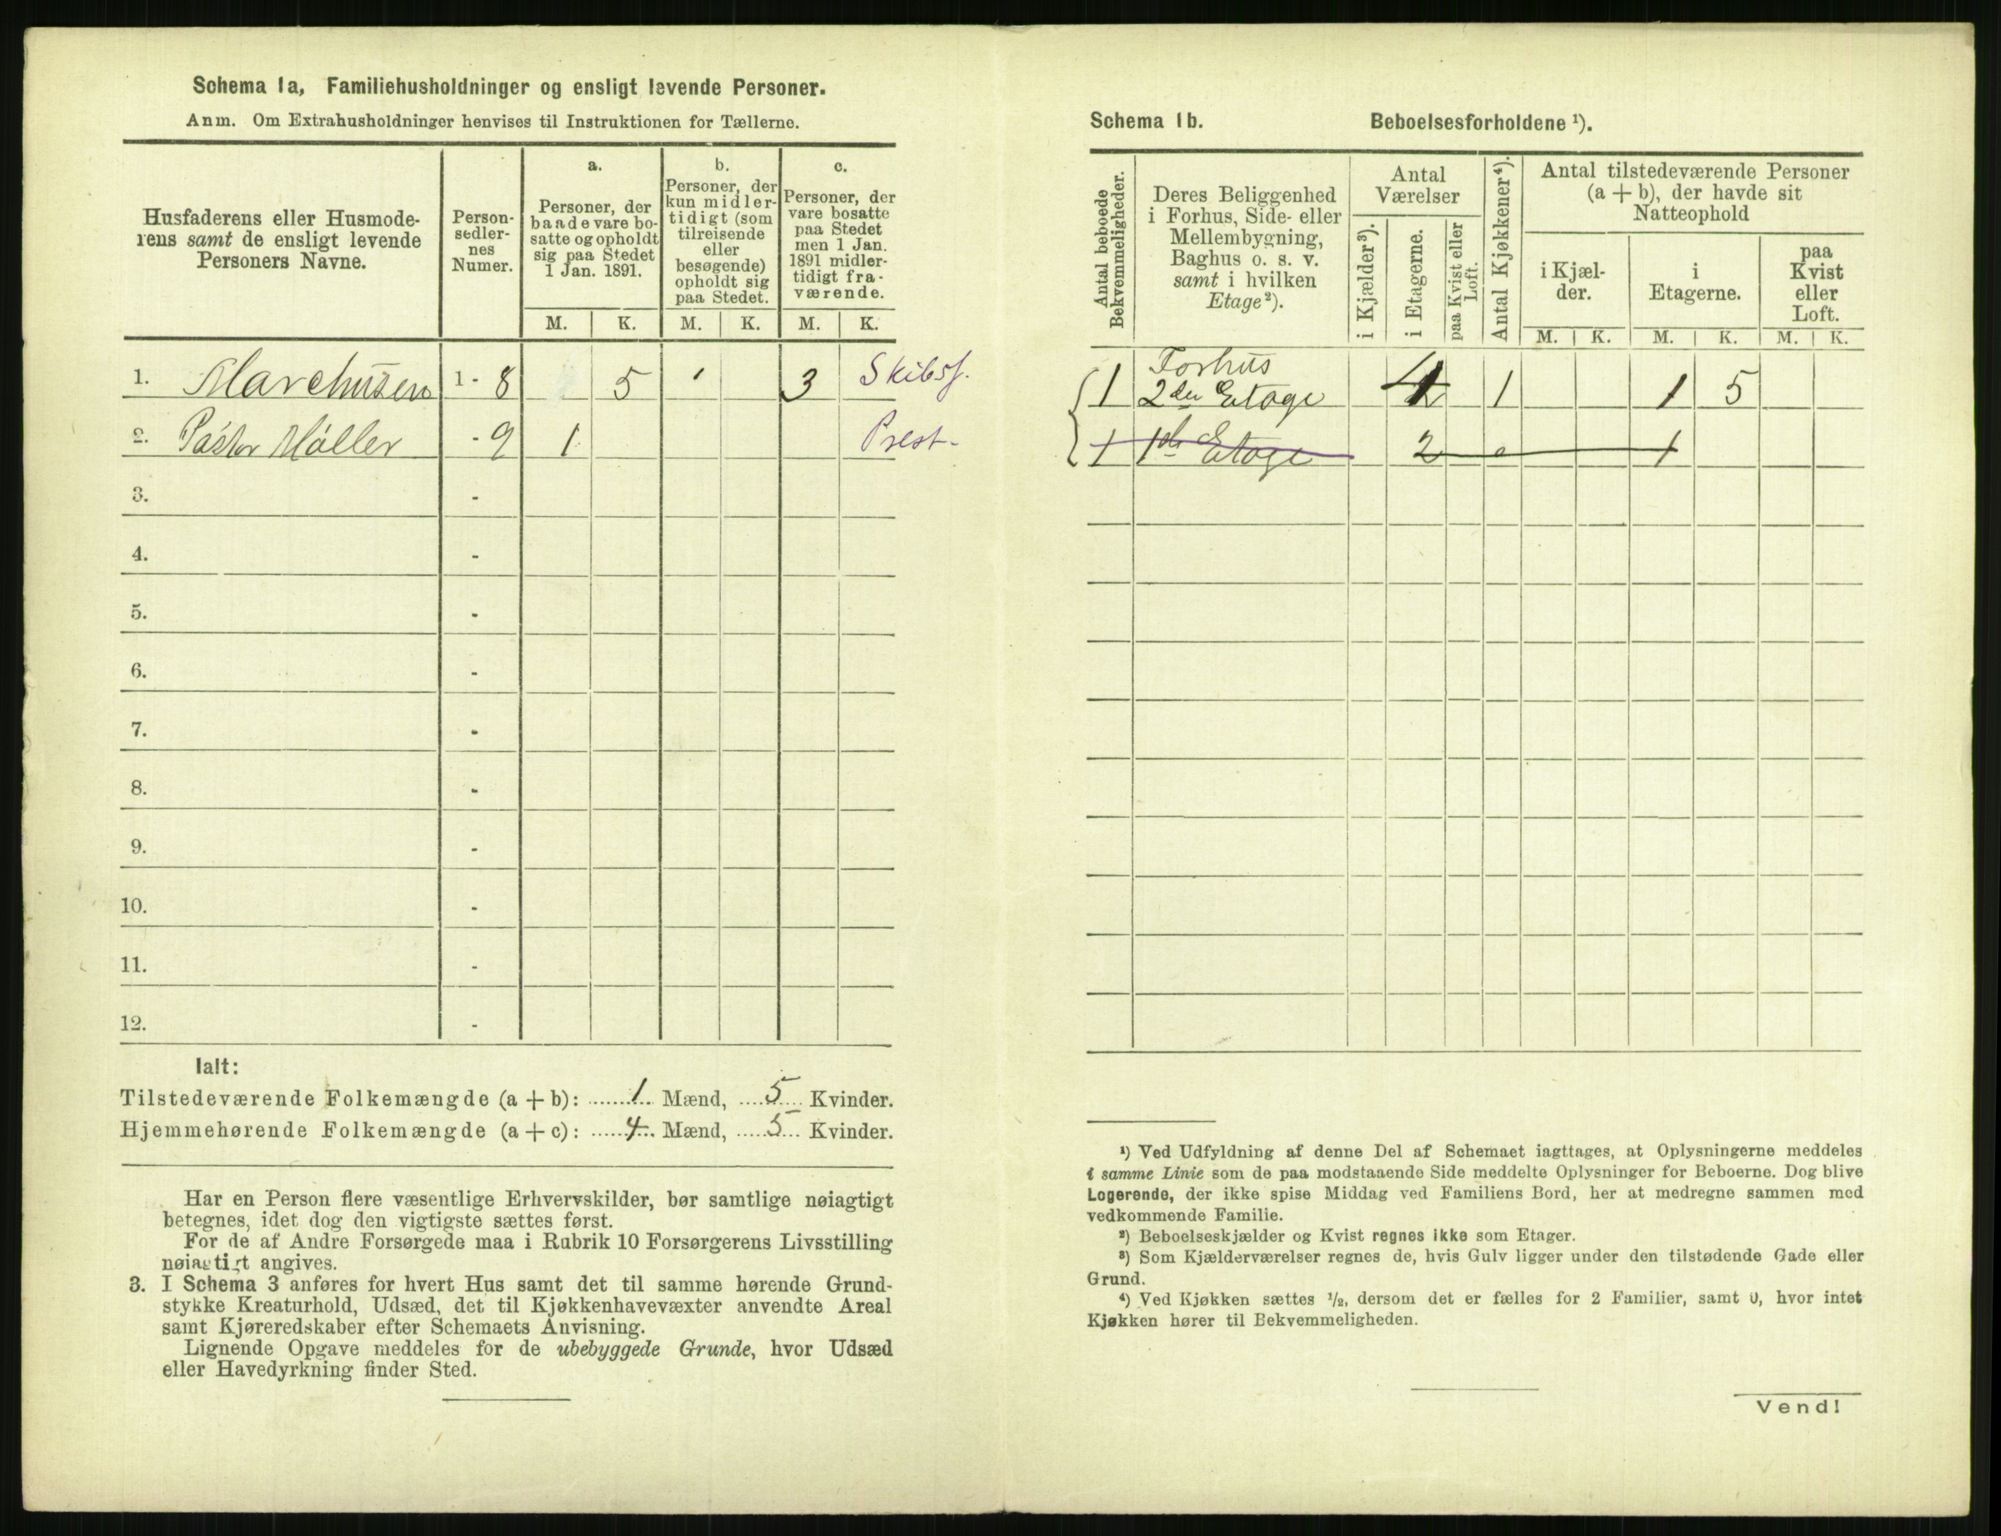 Schema 1a, Familiehusholdninger og ensligt levende Personer.
Anm. Om Extrahusholdninger henvises til Instruktionen for Tællerne.
Husfaderens eller Husmode-
rens samt de ensligt levende
Personers Navne.
Person-
sedler-
nes
Numer.
a.
Personer, der
baade vare bo-
satte og opholdt
sig paa Stedet
1 Jan. 1891.
b.
Personer, der
kun midler-
tidigt (som
tilreisende
eller
besøgende)
opholdt sig
paa Stedet.
c.
Personer, der
vare bosatte
paa Stedet
men 1 Jan.
1891 midler-
tidigt fra-
værende.
M. K. M. K. M. K.
1. Marchusen 1 - 8 5 3 Skibsf.
2. Pastor Møller - 9 1 Prest
3. -
4. -
5. -
6. -
7. -
8. -
9. -
10. -
11. -
12. -
Ialt:
Tilstedeværende Folkemængde (a + b): 1 Mænd, 5 Kvinder.
Hjemmehørende Folkemængde (a + c): 4 Mænd, 5 Kvinder.
Har en Person flere væsentlige Erhvervskilder, bør samtlige nøiagtigt
betegnes, idet dog den vigtigste sættes først.
For de af Andre Forsørgede maa i Rubrik 10 Forsørgerens Livsstilling
nøiagtigt angives.
3. I Schema 3 anføres for hvert Hus samt det til samme hørende Grund-
stykke Kreaturhold, Udsæd, det til Kjøkkenhavevæxter anvendte Areal
samt Kjøreredskaber efter Schemaets Anvisning.
Lignende Opgave meddeles for de ubebyggede Grunde, hvor Udsæd
eller Havedyrkning finder Sted.
Schema 1b. Beboelsesforholdene ¹).
Antal beboede
Bekvemmeligheder.
Deres Beliggenhed
i Forhus, Side- eller
Mellembygning,
Baghus o. s. v.
samt i hvilken
Etage²).
Antal
Værelser
i Kjælder³).
i Etagerne.
paa Kvist eller
Loft.
Antal Kjøkkener⁴).
Antal tilstedeværende Personer
(a + b), der havde sit
Natteophold
i Kjæl-
der.
i
Etagerne.
paa
Kvist
eller
Loft.
M. K. M. K. M. K.
Forhus
1 2den Etage 1 1 5
1 1ste Etage 2 1
¹) Ved Udfyldning af denne Del af Schemaet iagttages, at Oplysningerne meddeles
i samme Linie som de paa modstaaende Side meddelte Oplysninger for Beboerne. Dog blive
Logerende, der ikke spise Middag ved Familiens Bord, her at medregne sammen med
vedkommende Familie.
²) Beboelseskjælder og Kvist regnes ikke som Etager.
³) Som Kjælderværelser regnes de, hvis Gulv ligger under den tilstødende Gade eller
Grund.
⁴) Ved Kjøkken sættes ½, dersom det er fælles for 2 Familier, samt 0, hvor intet
Kjøkken hører til Bekvemmeligheden.
Vend!